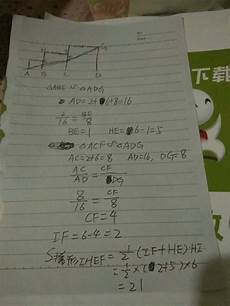 A B C D
△ABE ∽ △ADG
AD=2+6+8=16
2/16 = BE/8
BE=1 HE=6-1=5
△ACF ∽ △ADG
AC=2+6=8 AD=16, DG=8
AC/AD = CF/DG
8/16 = CF/8
CF=4
IF=6-4=2
S梯形IHEF=1/2(IF+HE)·HI
=1/2×(2+5)×6
=21
下载